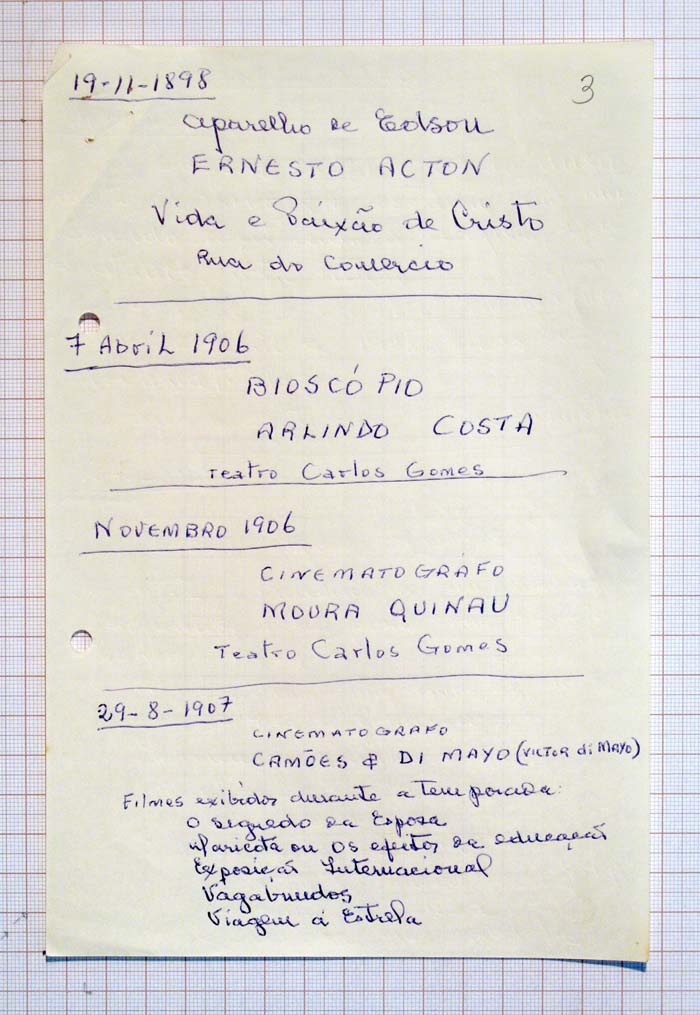 3
19-11-1898
aparelho de Edson
ERNESTO ACTON
Vida e Paixão de Cristo
Rua do Comercio
7 Abril 1906
BIOSCÓPIO
ARLINDO COSTA
Teatro Carlos Gomes
NOVEMBRO 1906
CINEMATOGRÁFO
MOURA QUINAU
Teatro Carlos Gomes
29-8-1907
CINEMATOGRAFO
CAMÕES & DI MAYO (VICTOR di MAYO)
Filmes exibidos durante a temporada:
O segredo da Esposa
ou os efeitos da educaçaõ
Exposiçaõ Internacional
Vagabundos
Viagem á Estrela